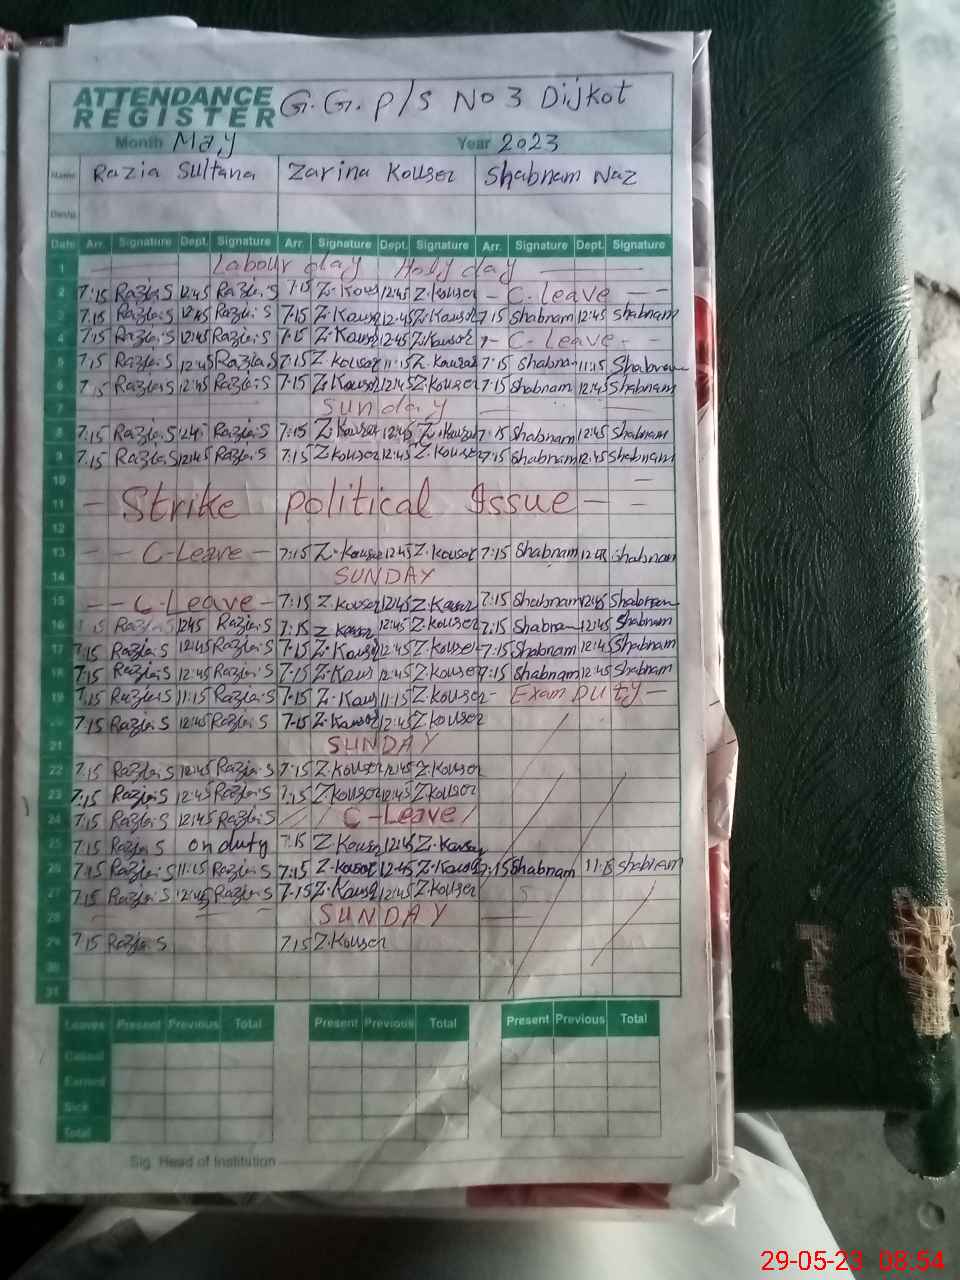 ATTENDANCE REGISTER G.G.P/S No 3 Dijkot
Month May Year 2023
Name Razia Sultana Zarina Kouser Shabnam Naz
Date Arr. Signature Dept. Signature Arr. Signature Dept. Signature Arr. Signature Dept. Signature
1 Labour day Holy day
2 7:15 Razia.S 12:45 Razia.S 7:15 Z.Kous 12:45 Z.kouser - C.leave - -
3 7:15 Razia.S 12:45 Razia.S 7:15 Z.Kouser 12:45 Z.Kouser 7:15 Shabnam 12:45 Shabnam
4 7:15 Razia.S 12:45 Razia.S 7:15 Z.Kouser 12:45 Z.Kouser - C.leave - -
5 7:15 Razia.S 12:45 Razia.S 7:15 Z.kouser 11:15 Z.kouser 7:15 Shabnam 11:15 Shabnam
6 7:15 Razia.S 12:45 Razia.S 7:15 Z.Kouser 12:45 Z.Kouser 7:15 Shabnam 12:45 Shabnam
7 Sunday
8 7:15 Razia.S 12:45 Razia.S 7:15 Z.Kouser 12:45 Z.Kouser 7:15 Shabnam 12:45 Shabnam
9 7:15 Razia.S 12:45 Razia.S 7:15 Z.Kouser 12:45 Z.Kouser 7:15 Shabnam 12:45 Shabnam
10
11 - Strike political Issue -
12
13 - - C-Leave - 7:15 Z.Kouser 12:45 Z.Kouser 7:15 Shabnam 12:45 Shabnam
14 SUNDAY
15 - - C.Leave - 7:15 Z.Kouser 12:45 Z.Kouser 7:15 Shabnam 12:45 Shabnam
16 7:15 Razia.S 12:45 Razia.S 7:15 Z Kouser 12:45 Z.Kouser 7:15 Shabnam 12:45 Shabnam
17 7:15 Razia.S 12:45 Razia.S 7:15 Z.Kouser 12:45 Z.Kouser 7:15 Shabnam 12:45 Shabnam
18 7:15 Razia.S 12:45 Razia.S 7:15 Z.Kous 12:45 Z.Kouser 7:15 Shabnam 12:45 Shabnam
19 7:15 Razia.S 11:15 Razia.S 7:15 Z.Kous 11:15 Z.Kouser - Exam Duty -
20 7:15 Razia.S 12:45 Razia.S 7:15 Z.Kouser 12:45 Z.Kouser
21 SUNDAY
22 7:15 Razia.S 12:45 Razia.S 7:15 Z.Kouser 12:45 Z.Kouser
23 7:15 Razia.S 12:45 Razia.S 7:15 Z.Kouser 12:45 Z.Kouser
24 7:15 Razia.S 12:45 Razia.S C-Leave
25 7:15 Razia S on duty 7:15 Z.Kouser 12:45 Z.Kouser
26 7:15 Razia.S 11:15 Razia.S 7:15 Z.Kouser 12:45 Z.Kouser 7:15 Shabnam 11:15 Shabnam
27 7:15 Razia.S 12:45 Razia.S 7:15 Z.Kouser 12:45 Z.Kouser
28 SUNDAY
29 7:15 Razia.S 7:15 Z.Kouser
30
31
Leaves Present Previous Total Present Previous Total Present Previous Total
Casual
Earned
Sick
Total
Sig. Head of Institution
29-05-23 08:54